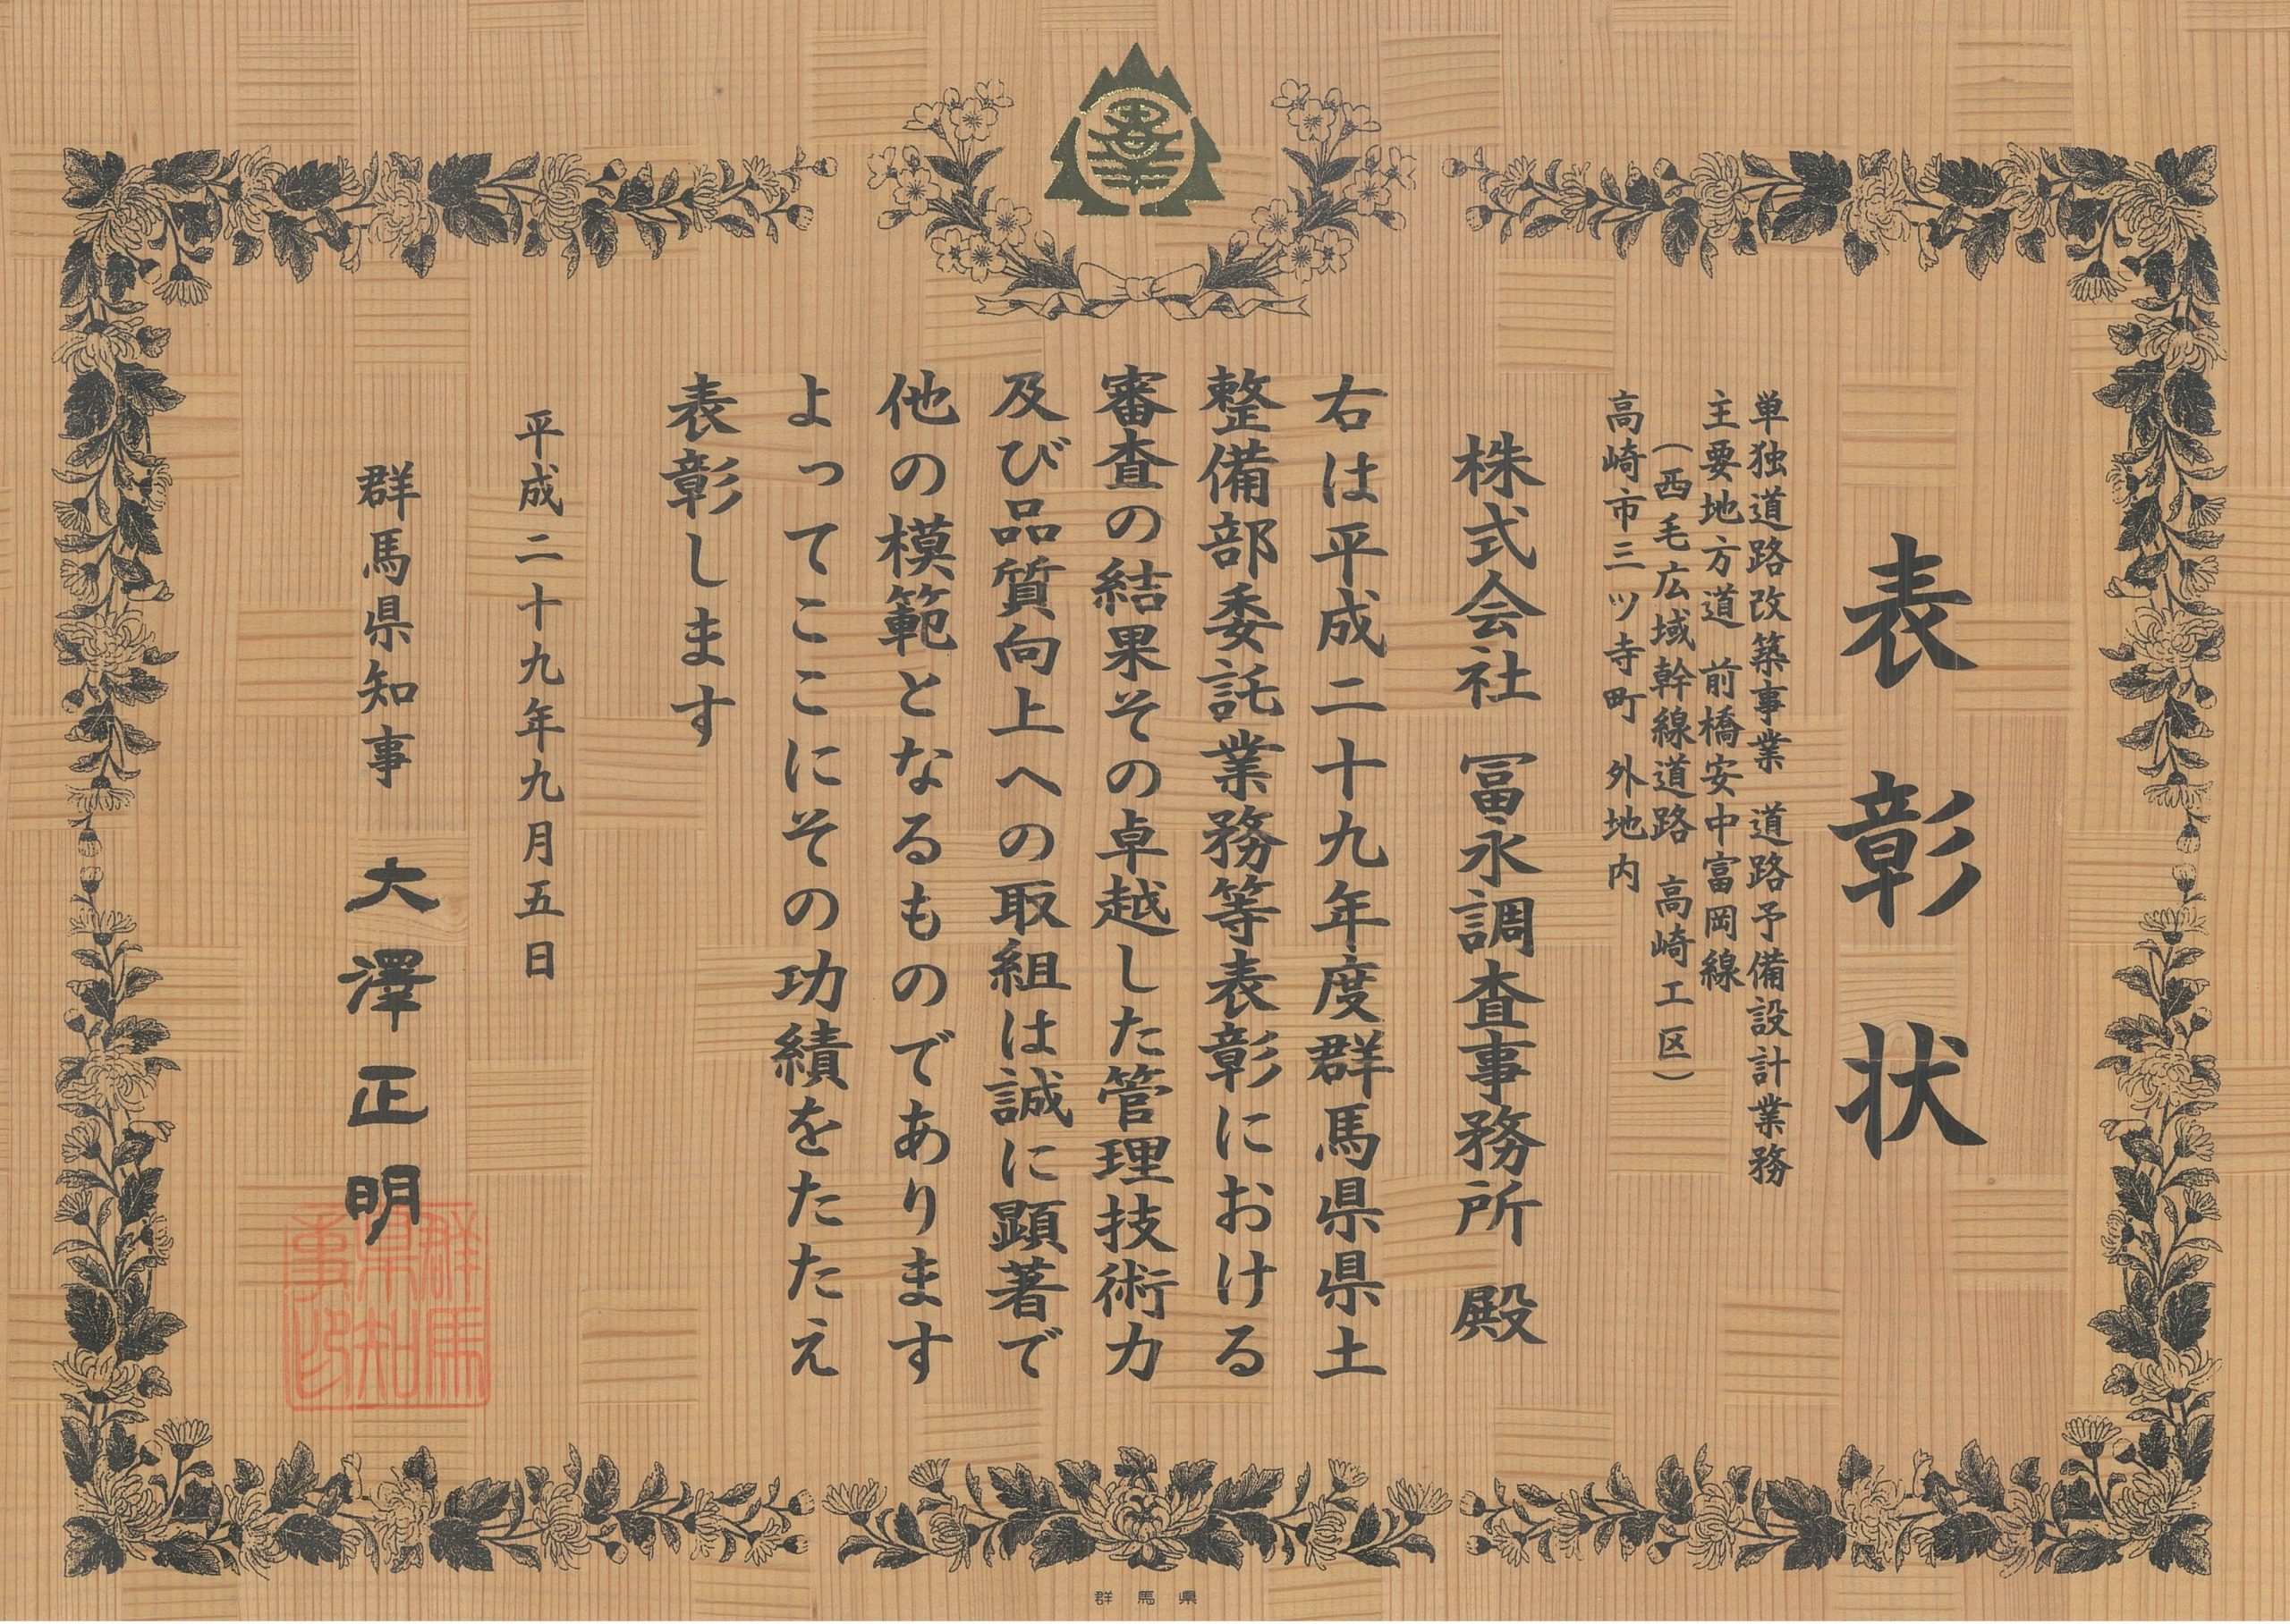 表彰状
単独道路改築事業 道路予備設計業務
主要地方道 前橋安中富岡線
（西毛広域幹線道路 高崎工区）
高崎市三ツ寺町 外地内
株式会社 冨永調査事務所 殿
右は平成二十九年度群馬県県土
整備部委託業務等表彰における
審査の結果その卓越した管理技術力
及び品質向上への取組は誠に顕著で
他の模範となるものであります
よってここにその功績をたたえ
表彰します
平成二十九年九月五日
群馬県知事 大澤正明
群馬
県知
事印
群馬県